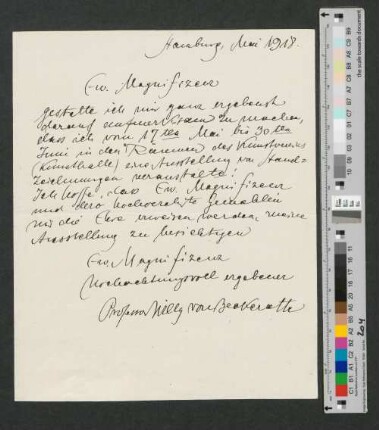 Hamburg, Mai 1918.
Ew. Magnifizenz
gestatte ich mir ganz ergebenst
darauf aufmerksam zu machen,
dass ich vom 17ten Mai bis 30ten
Juni in den Räumen des Kunstvereins
(Kunsthalle) eine Ausstellung von Hand-
zeichnungen veranstalte.
Ich hoffe, dass Ew. Magnifizenz
und dero hochverehrte Gemahlin
mir die Ehre erweisen werden, meine
Ausstellung zu besichtigen
Ew. Magnifizenz
Hochachtungsvoll ergebener
Professor Willy von Beckerath
204